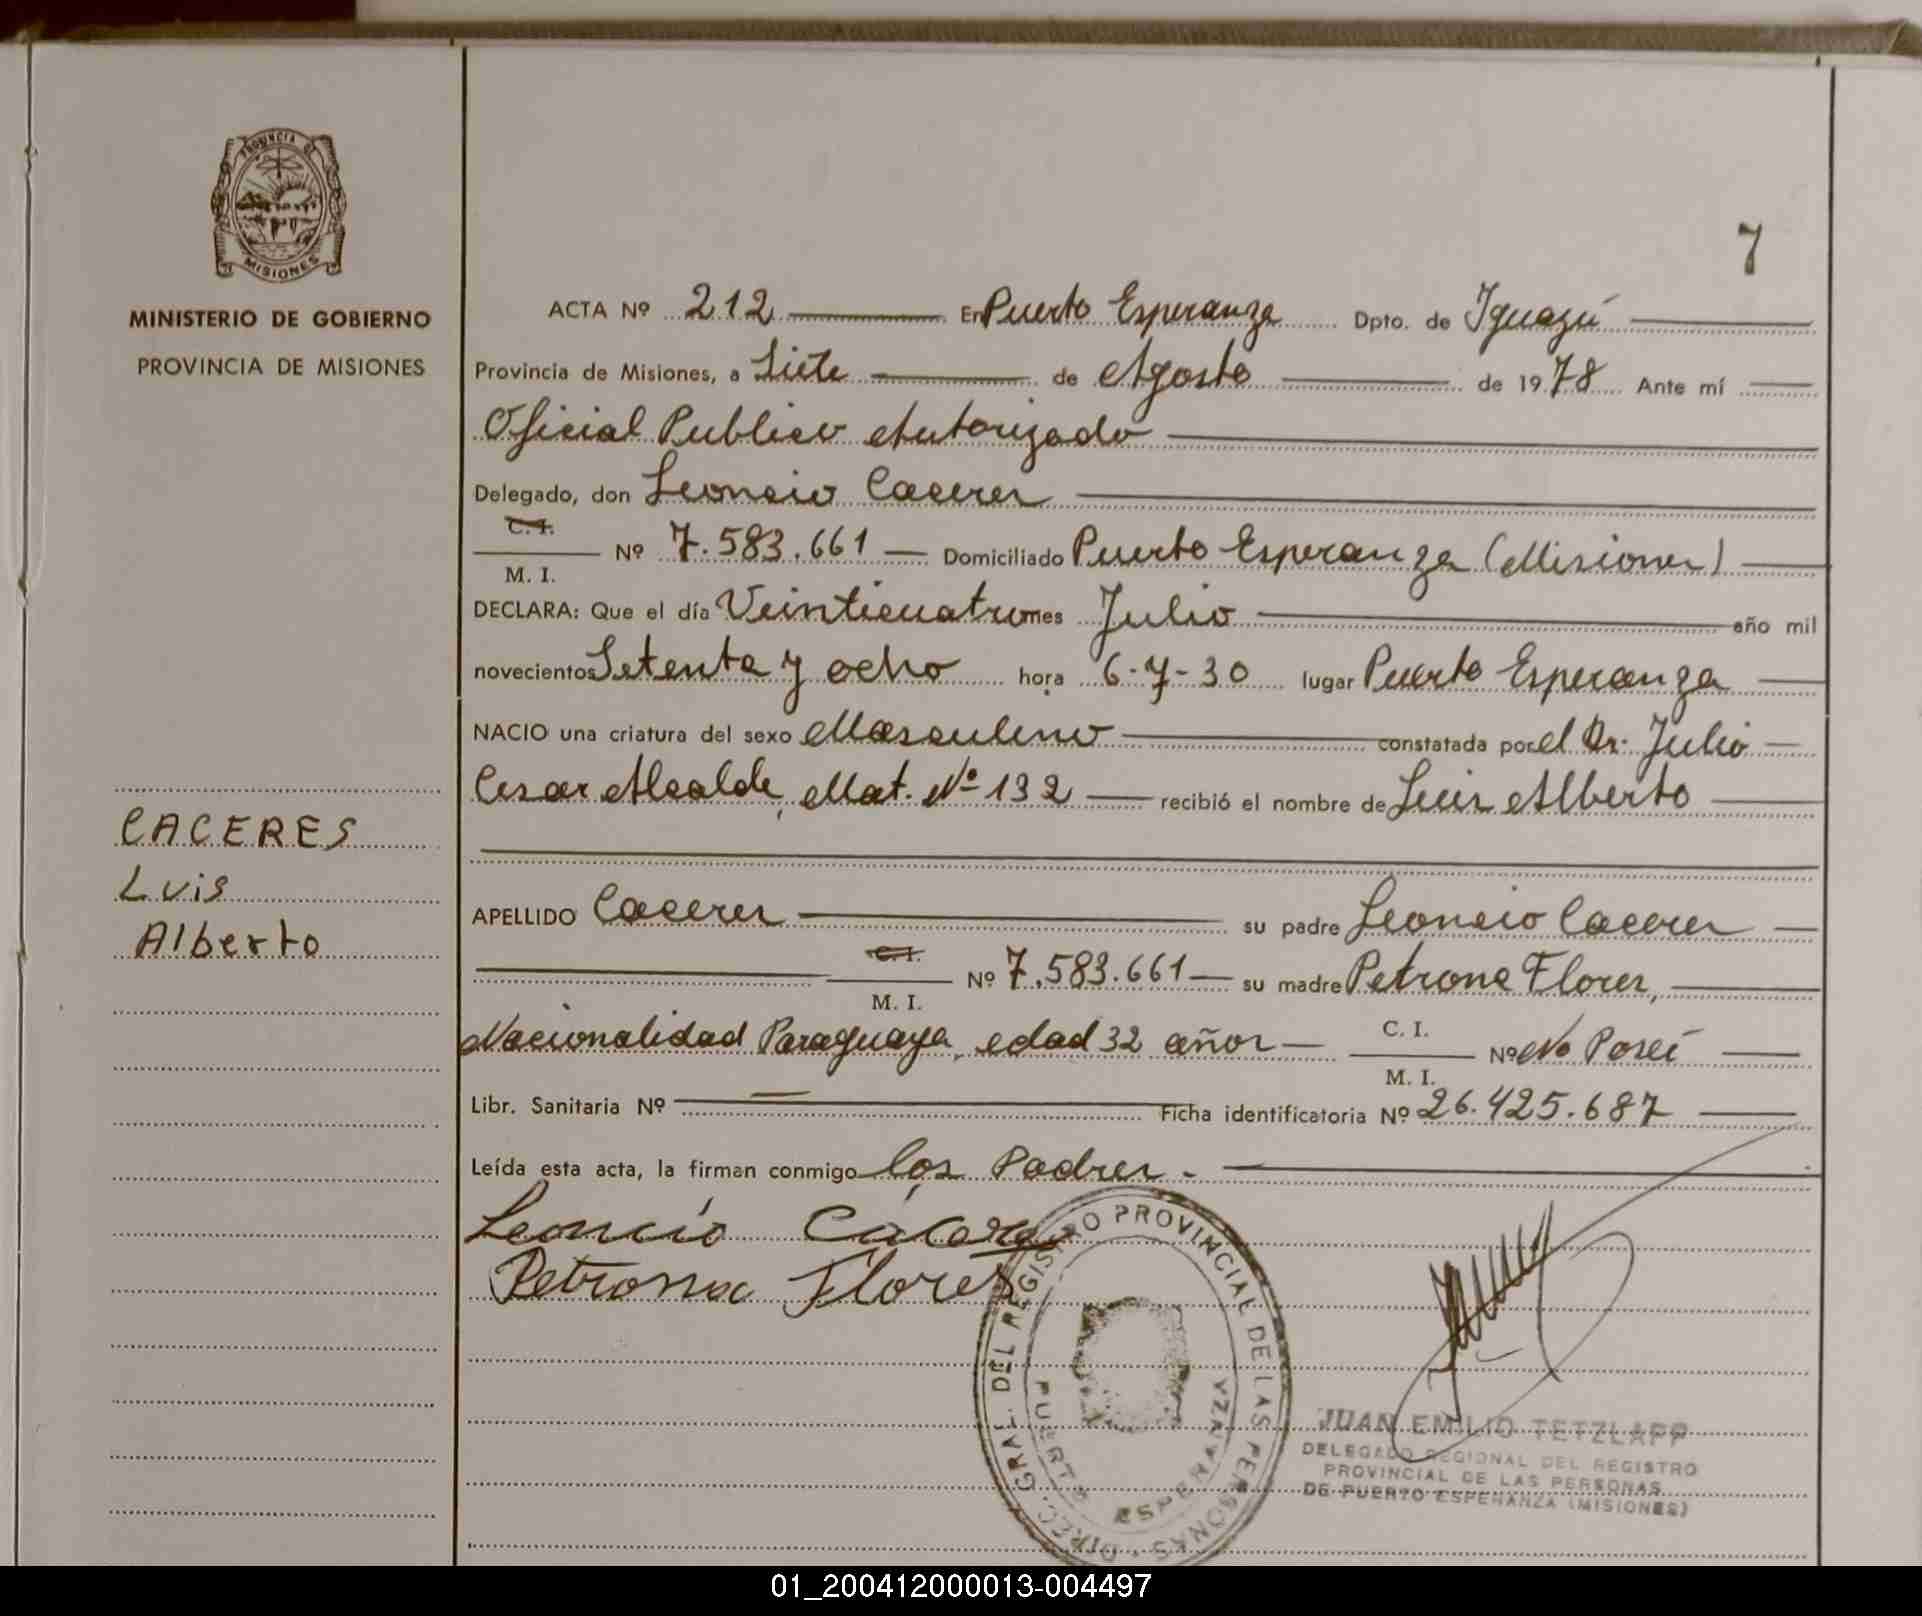 PROVINCIA DE
MISIONES
MINISTERIO DE GOBIERNO
PROVINCIA DE MISIONES
CACERES
Luis
Alberto
7
ACTA Nº 212 En Puerto Esperanza Dpto. de Iguazú
Provincia de Misiones, a Siete de Agosto de 1978 Ante mí
Oficial Publico Autorizado
Delegado, don Leoncio Caceres
C. I.
Nº 7.583.661 Domiciliado Puerto Esperanza (Misiones)
M. I.
DECLARA: Que el día Veinticuatro mes Julio año mil
novecientos Setenta y ocho hora 6-7-30 lugar Puerto Esperanza
NACIO una criatura del sexo Masculino constatada por el Dr. Julio
Cesar Alcalde, Mat. Nº 132 recibió el nombre de Luis Alberto
APELLIDO Caceres su padre Leoncio Caceres
C. I.
Nº 7.583.661 su madre Petrona Flores,
M. I.
Nacionalidad Paraguaya, edad 32 años C. I. Nº No Poseé
M. I.
Libr. Sanitaria Nº — Ficha identificatoria Nº 26.425.687
Leída esta acta, la firman conmigo los Padres.
Leoncio Cáceres
Petrona Flores
DIREC. GRAL. DEL REGISTRO PROVINCIAL DE LAS PERSONAS
PUERTO ESPERANZA
JUAN EMILIO TETZLAFF
DELEGADO REGIONAL DEL REGISTRO
PROVINCIAL DE LAS PERSONAS
DE PUERTO ESPERANZA (MISIONES)
01_200412000013-004497